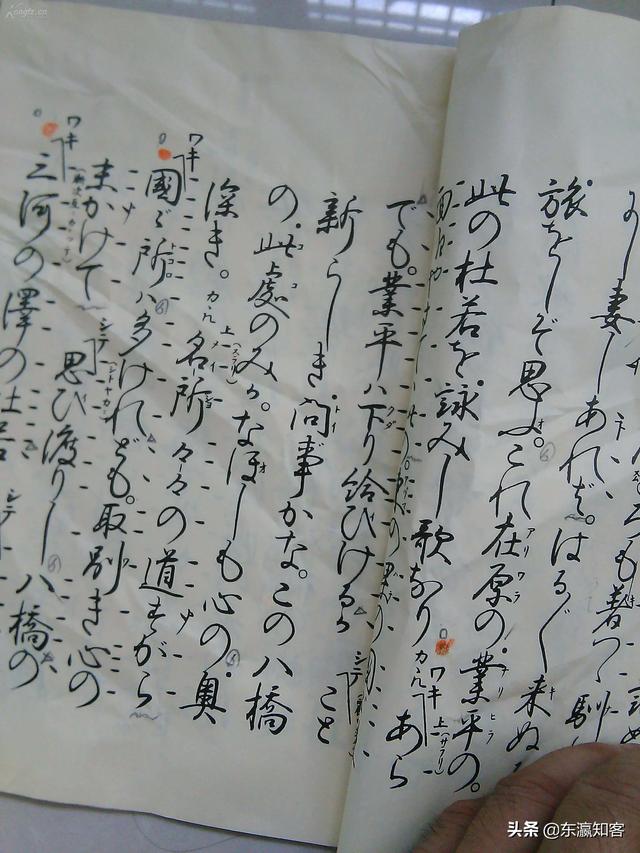 ろも着つゝ馴
し妻しあれば。はる〴〵来ぬ
旅をしぞ思ふ。これ在原の業平の。
此の杜若を.詠みし歌なり ワキ あら
でも。業平ハ下り給ひけるか シテ こと
新らしき問事かな。この八橋
の.此處のみか。なほしも心の.奥
深き。名所々々の道すがら
ワキ 國々所ハ多けれども。取別き心の
末かけて シテ 思ひ渡りし八橋の
ワキ 三河の澤の杜若 シテ
头条 @东瀛知客